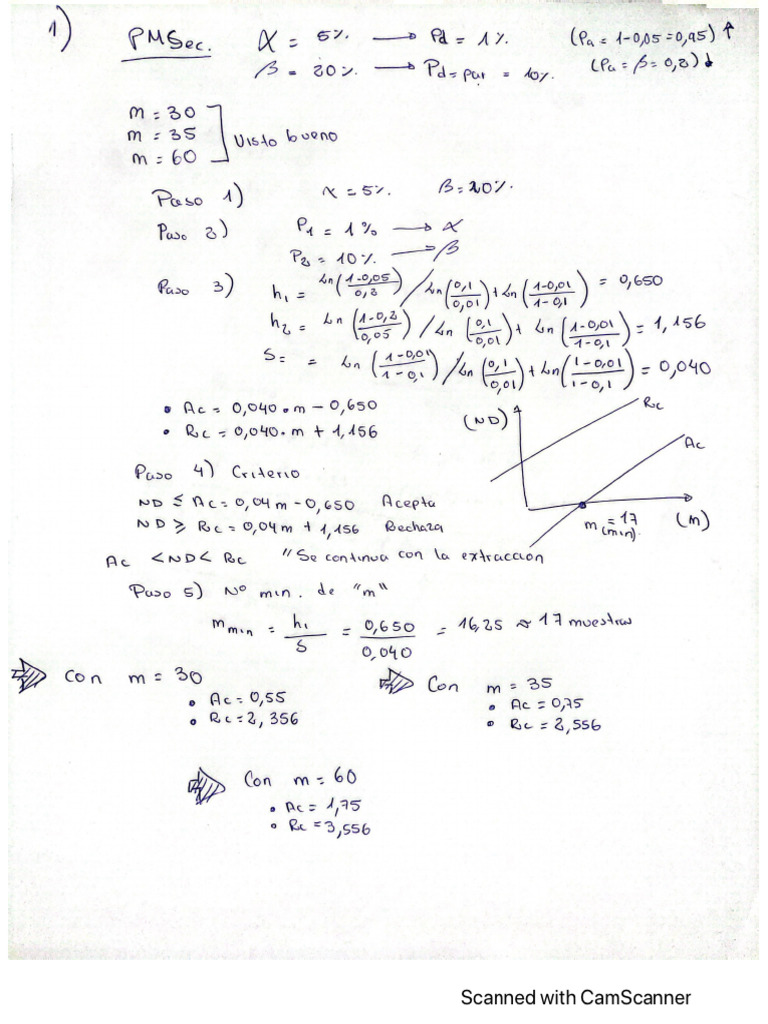 1)
PMSec. α = 5%. → Pd = 1%. (Pa = 1-0,05 = 0,95) ↑
β = 20%. → Pd=par = 10%. (Pa = β = 0,2) ↓
m = 30
m = 35 Visto bueno
m = 60
Paso 1) α = 5%. β = 20%.
Paso 2) P1 = 1% → α
P2 = 10%. → β
Paso 3) h1 = Ln(1-0,05/0,2) / Ln(0,1/0,01) + Ln(1-0,01/1-0,1) = 0,650
h2 = Ln(1-0,2/0,05) / Ln(0,1/0,01) + Ln(1-0,01/1-0,1) = 1,156
S = = Ln(1-0,01/1-0,1) / Ln(0,1/0,01) + Ln(1-0,01/1-0,1) = 0,040
• Ac = 0,040 • m - 0,650
• Rc = 0,040 • m + 1,156
(ND) Rc
Ac
m = 17 (min). (m)
Paso 4) Criterio
ND ≤ Ac = 0,04m - 0,650 Acepta
ND ≥ Rc = 0,04m + 1,156 Rechaza
Ac < ND < Rc "Se continua con la extraccion
Paso 5) Nº min. de "m"
m min = h1/S = 0,650/0,040 = 16,25 ≈ 17 muestras
⇒ Con m = 30
• Ac = 0,55
• Rc = 2,356
⇒ Con m = 35
• Ac = 0,75
• Rc = 2,556
⇒ Con m = 60
• Ac = 1,75
• Rc = 3,556
Scanned with CamScanner